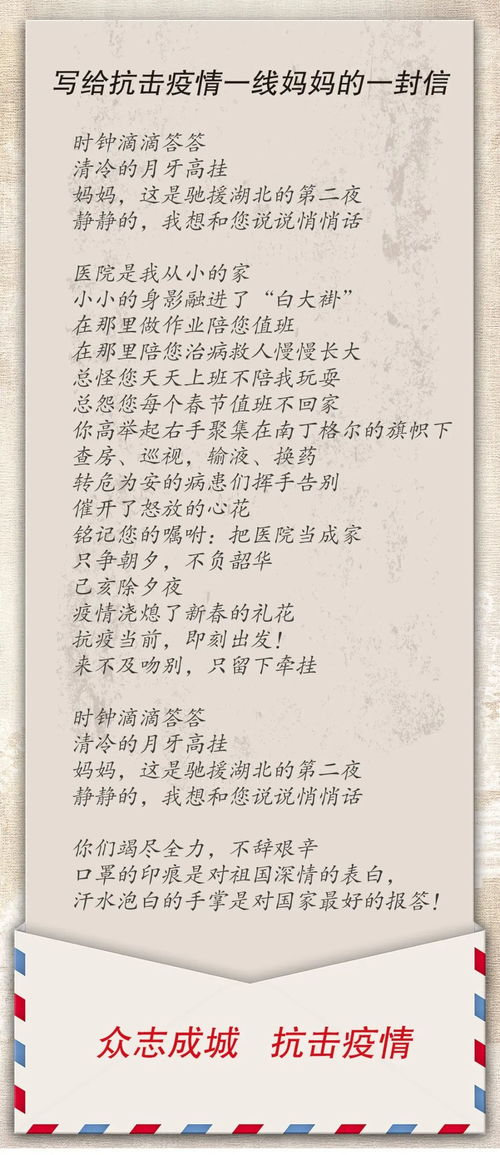 写给抗击疫情一线妈妈的一封信
时钟滴滴答答
清冷的月牙高挂
妈妈，这是驰援湖北的第二夜
静静的，我想和您说说悄悄话
医院是我从小的家
小小的身影融进了“白大褂”
在那里做作业陪您值班
在那里陪您治病救人慢慢长大
总怪您天天上班不陪我玩耍
总怨您每个春节值班不回家
你高举起右手聚集在南丁格尔的旗帜下
查房、巡视，输液、换药
转危为安的病患们挥手告别
催开了怒放的心花
铭记您的嘱咐：把医院当成家
只争朝夕，不负韶华
己亥除夕夜
疫情浇熄了新春的礼花
抗疫当前，即刻出发！
来不及吻别，只留下牵挂
时钟滴滴答答
清冷的月牙高挂
妈妈，这是驰援湖北的第二夜
静静的，我想和您说说悄悄话
你们竭尽全力，不辞艰辛
口罩的印痕是对祖国深情的表白，
汗水泡白的手掌是对国家最好的报答！
众志成城 抗击疫情